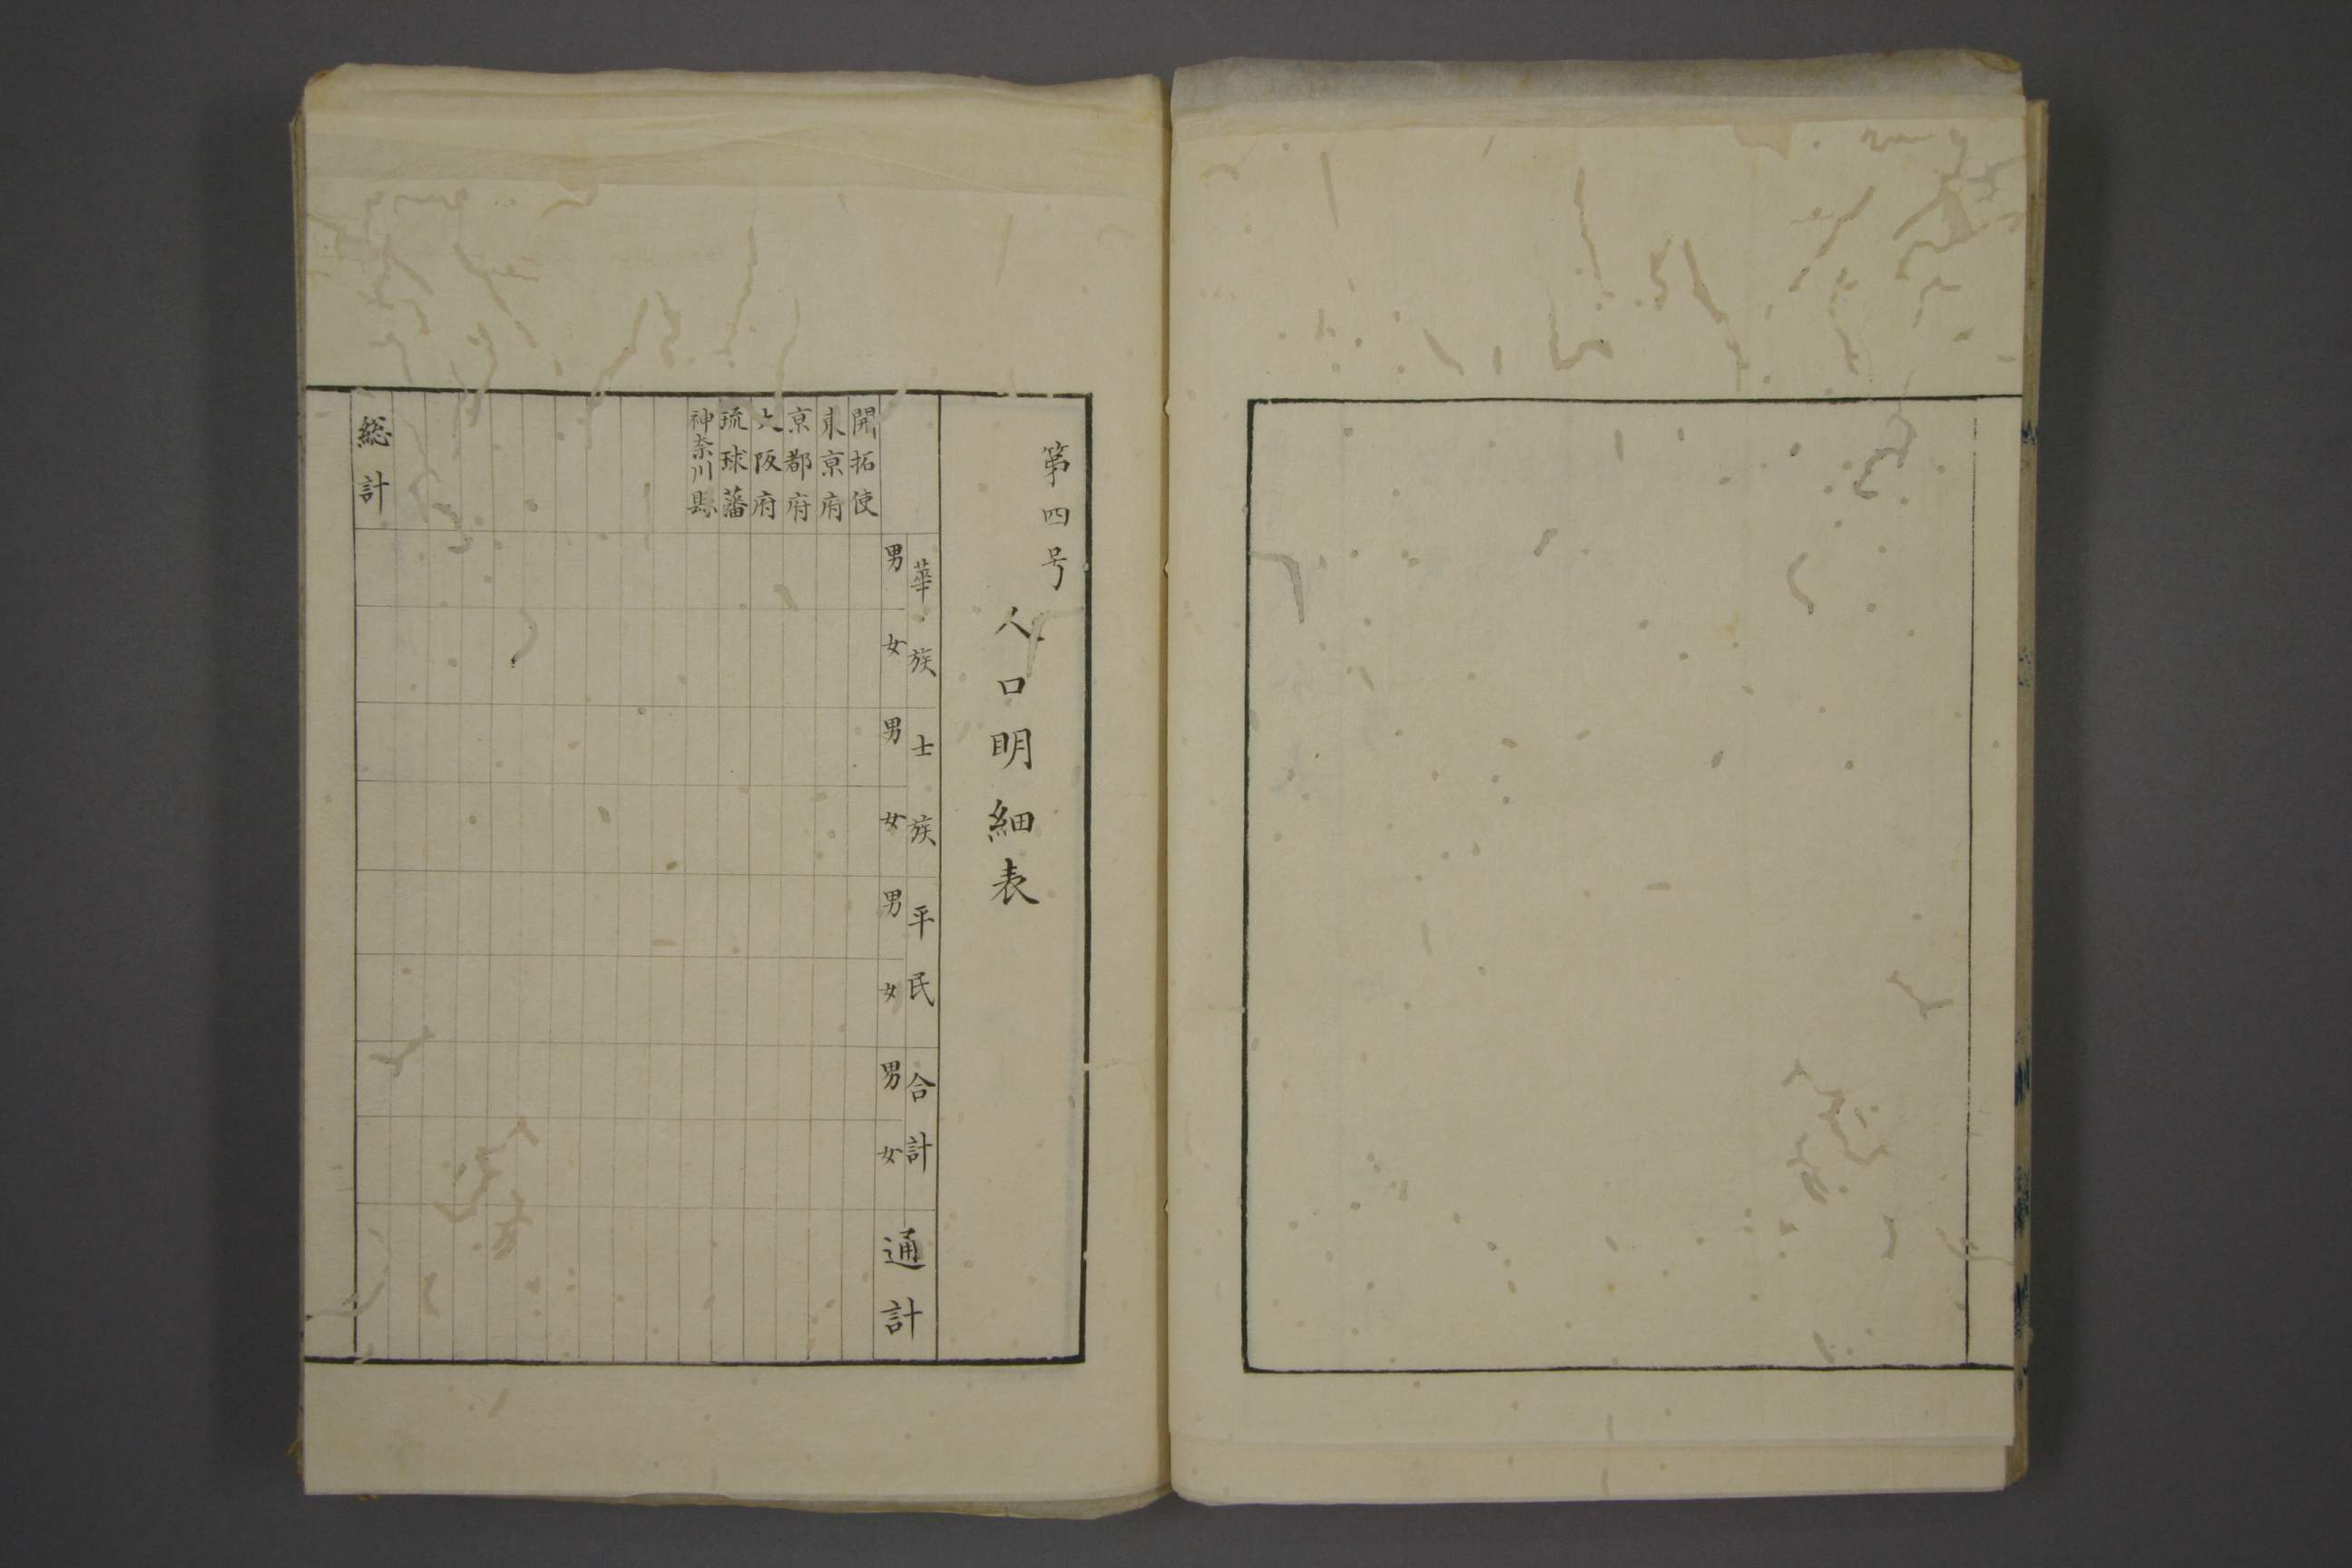 第四号
人口明細表
華族 士族 平民 合計 通計
男 女 男 女 男 女 男 女
開拓使
東京府
京都府
大阪府
琉球藩
神奈川縣
総計